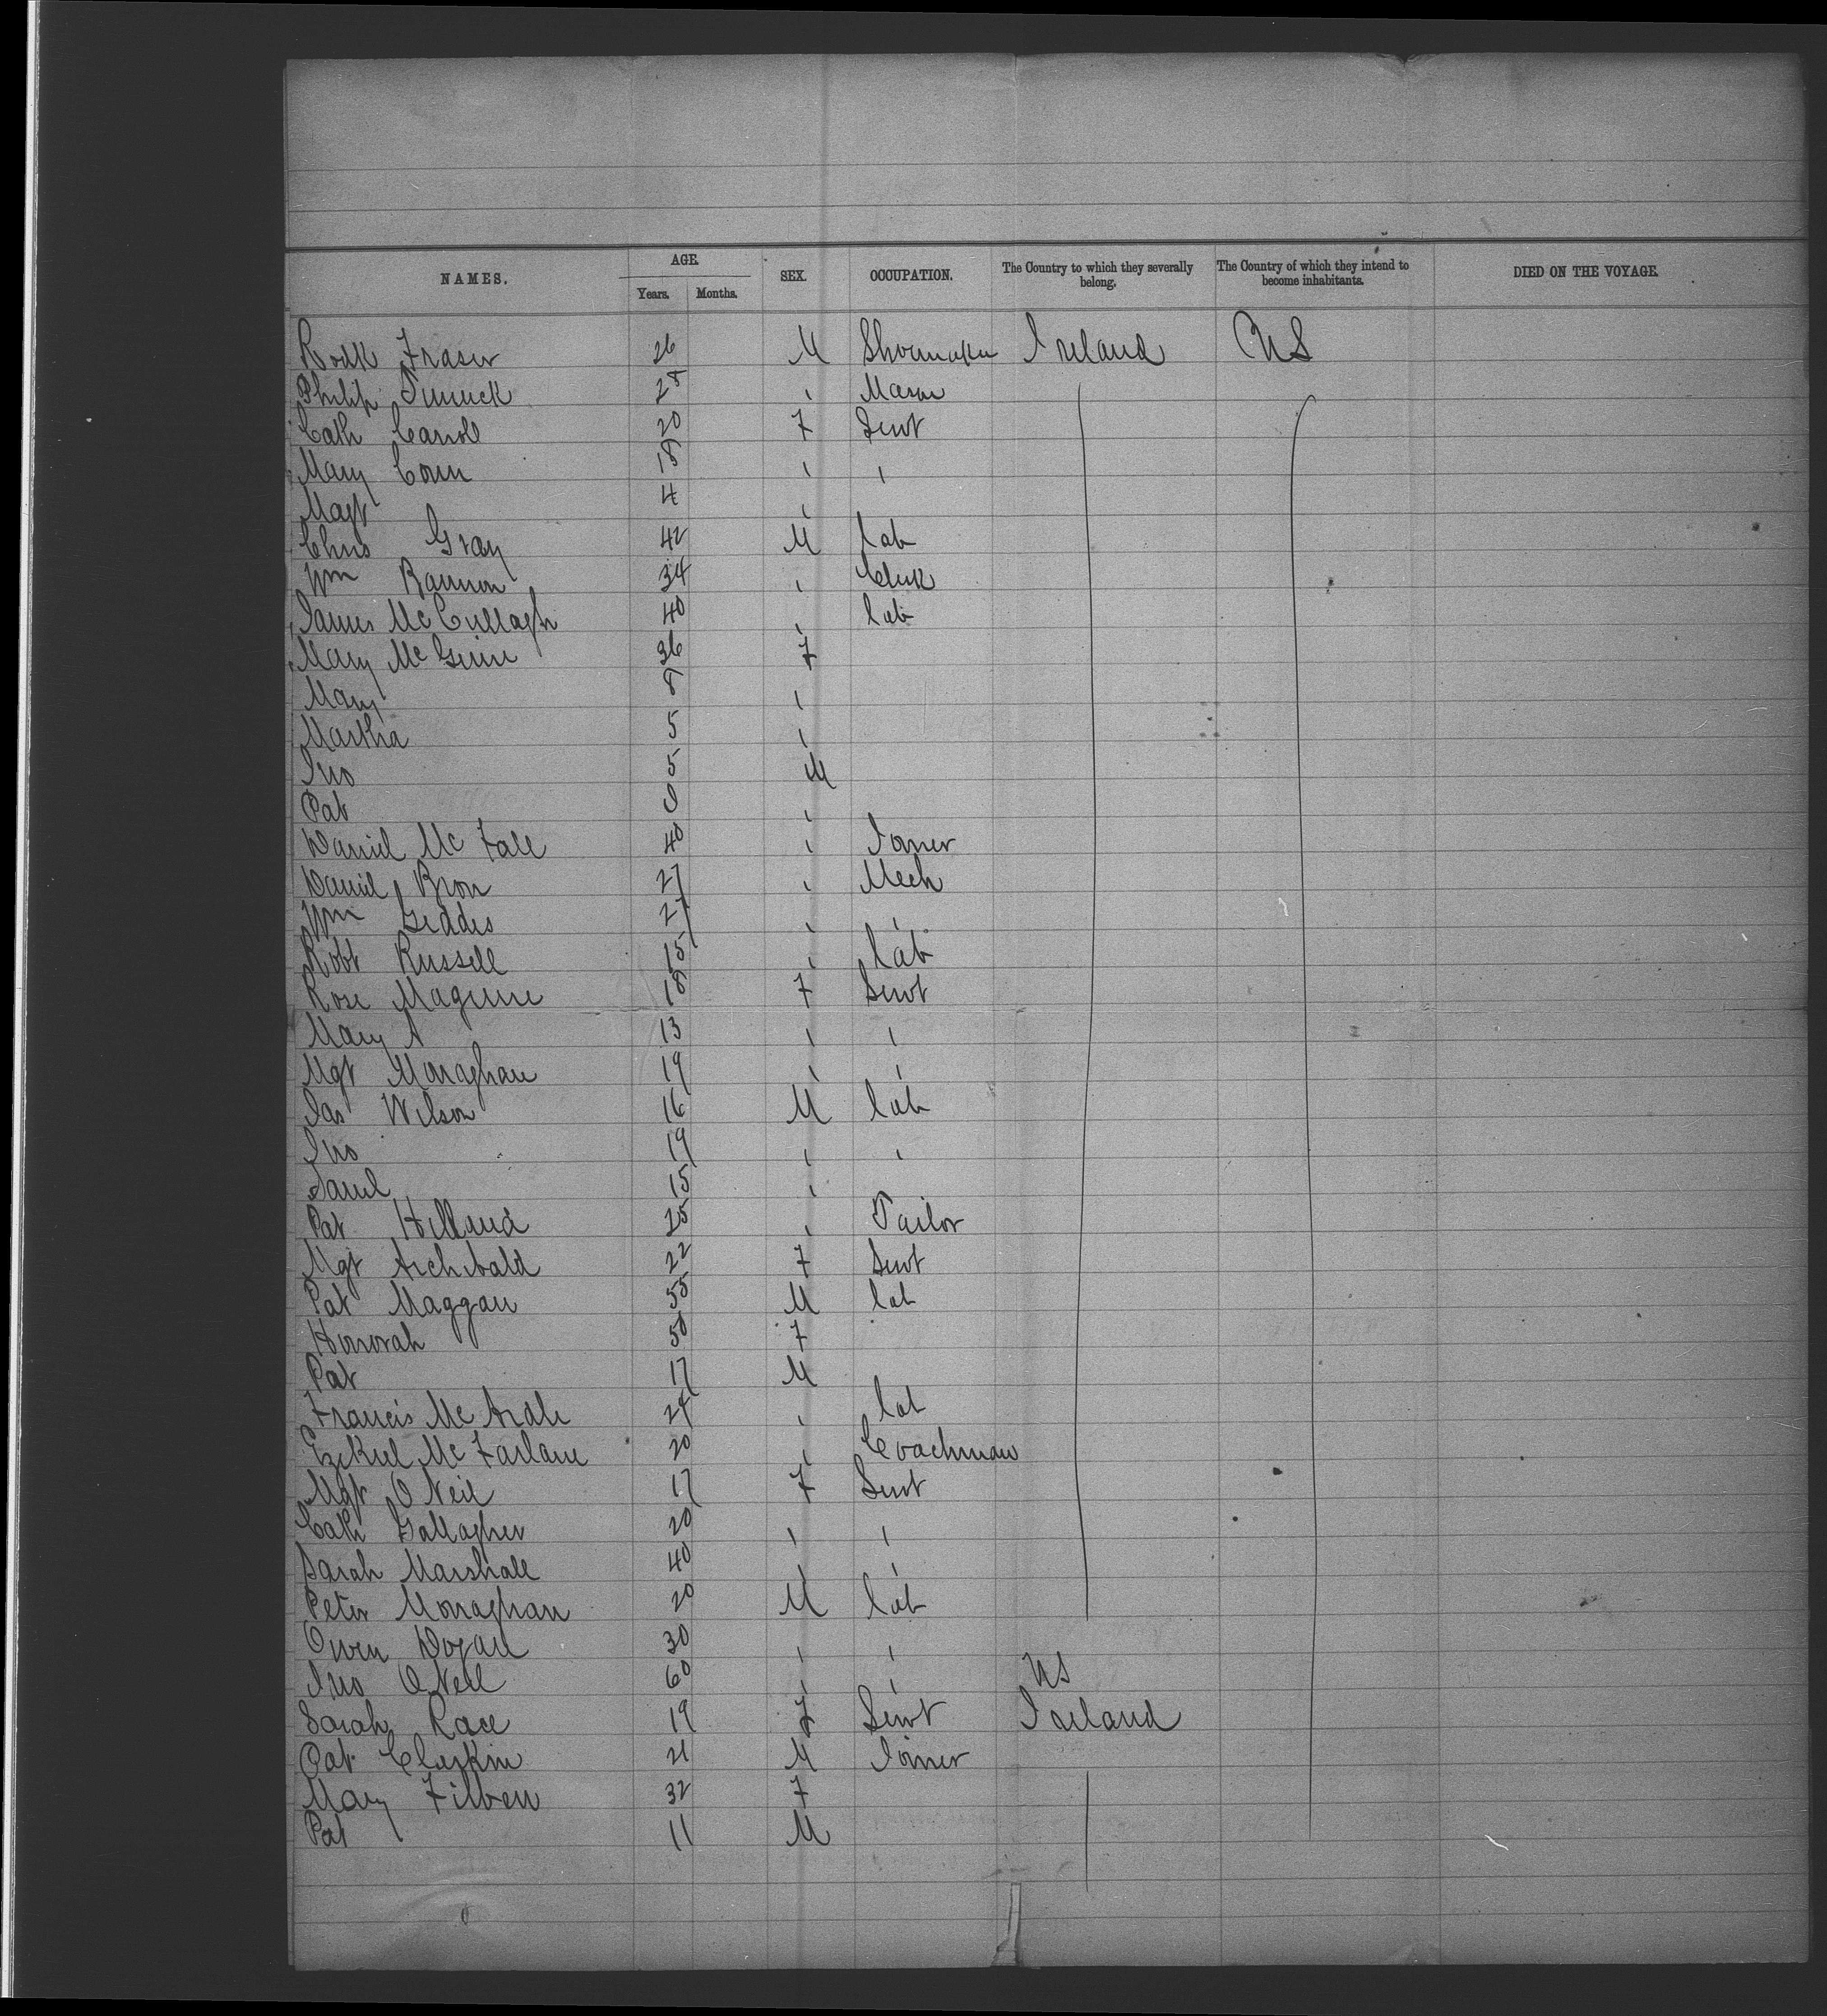 NAMES. AGE. SEX. OCCUPATION. The Country to which they severally belong. The Country of which they intend to become inhabitants. DIED ON THE VOYAGE.
Years. Months.
Rodk Fraser 26 M Shoemaker Ireland US
Philip 28 " Mason
Cath Carroll 20 F Servt
Mary Corn 18 " "
Magt 4 "
Chris Gray 42 M lab
Wm Bannon 34 " Clerk
James McCullagh 40 " lab
Mary McGinn 36 F
Mary 8 "
Martha 5 "
Jno 5 M
Pat "
Daniel McFall 40 " Joiner
Daniel Bron 27 " Mech
Wm Geddis 27 " "
Robt Russell 15 " lab
Rose Maguire 18 F Servt
Mary A 13 " "
Mgt Monaghan 19 " "
Jas Wilson 16 M lab
Jno 19 " "
Saml 15 "
Pat Holland 25 " Tailor
Mgt Archibald 22 F Servt
Pat Maggan 55 M lab
Honorah 50 F
Pat 17 M
Francis McArdle 24 " lab
Ezekiel McFarlane 20 " Coachman
Mgt O Neil 17 F Servt
Cath Gallagher 20 " "
Sarah Marshall 40 " "
Peter Monaghan 20 M lab
Owen Dogan 30 " "
Jno O Neil 60 " " US
Sarah Race 19 F Servt Ireland
Pat Cluskin 21 M Joiner
Mary Filben 32 F
Pat 11 M